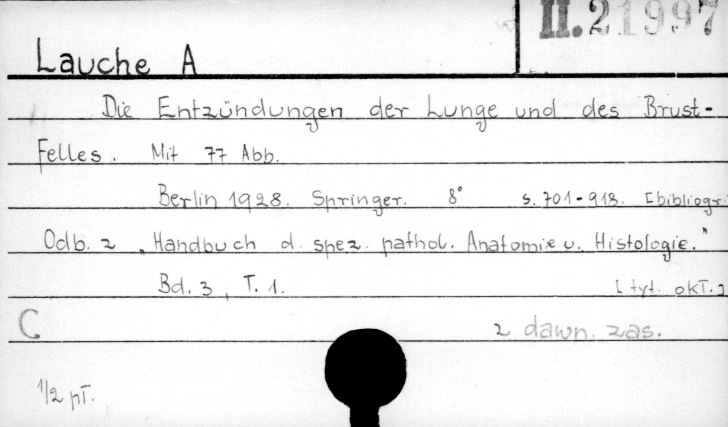 II.21997
Lauche A
Die Entzündungen der Lunge und des Brust-
Felles. Mit 77 Abb.
Berlin 1928. Springer. 8° s. 701-918. [bibliogr.
Odb. z „Handbuch d. spez. pathol. Anatomie u. Histologie."
Bd. 3, T. 1. [tyt. okł.]
C z dawn. zas.
1/2 pł.